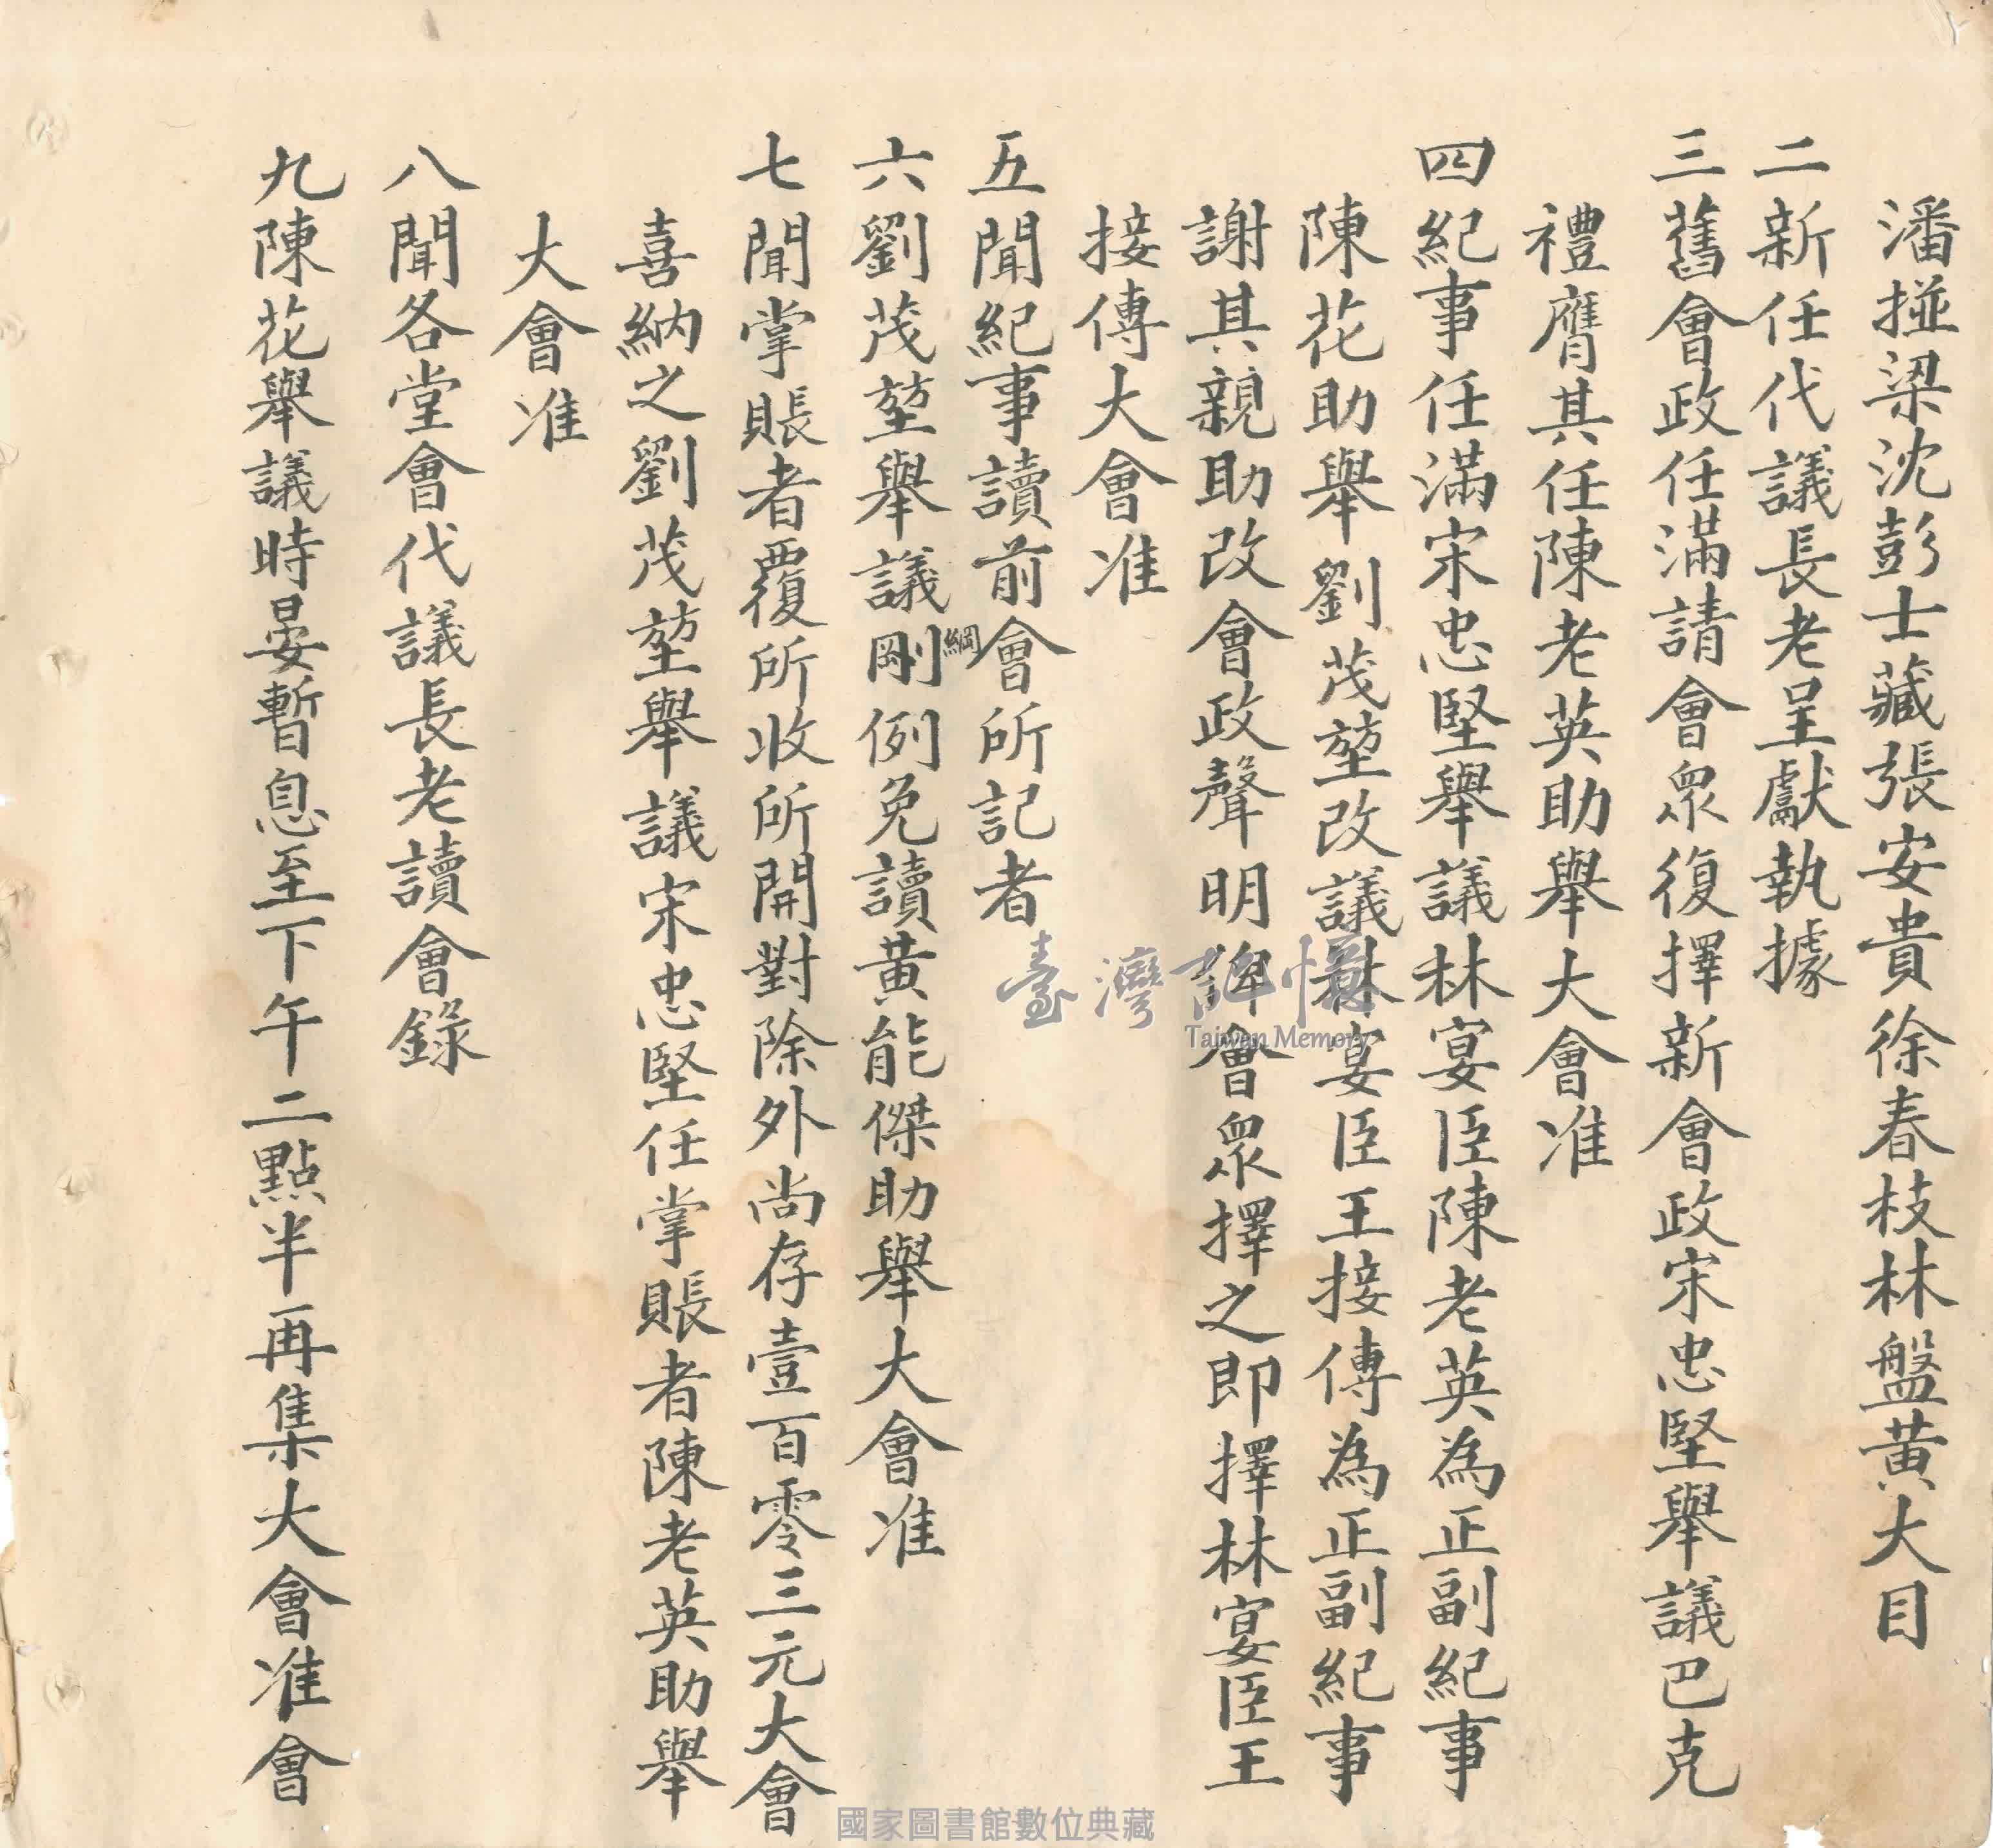 潘掽梁沈彭士藏張安貴徐春枝林盤黃大目
二新任代議長老呈獻執據
三舊會政任滿請會眾復擇新會政宋忠堅舉議巴克
禮膺其任陳老英助舉大會准
四紀事任滿宋忠堅舉議林宴臣陳老英為正副紀事
陳花助舉劉茂堃改議林宴臣王接傳為正副紀事
謝其親助改會政聲明俾會眾擇之即擇林宴臣王
接傳大會准
五聞紀事讀前會所記者
六劉茂堃舉議剛例免讀黃能傑助舉大會准
綱
七聞掌賬者覆所收所開對除外尚存壹百零三元大會
喜納之劉茂堃舉議宋忠堅任掌賬者陳老英助舉
大會准
八聞各堂會代議長老讀會錄
九陳花舉議時晏暫息至下午二點半再集大會准會
臺灣記憶
Taiwan Memory
國家圖書館數位典藏